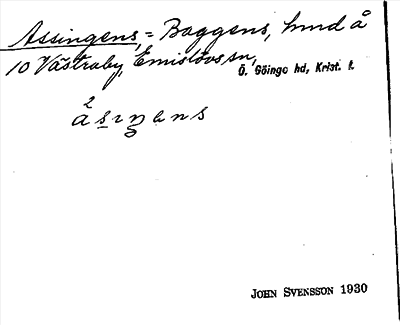 Assingens, = Baggens, hmd å
10 Västraby, Emislövs sn,
Ö. Göinge hd, Krist. l.
2
åsıŋens
JOHN SVENSSON 1930